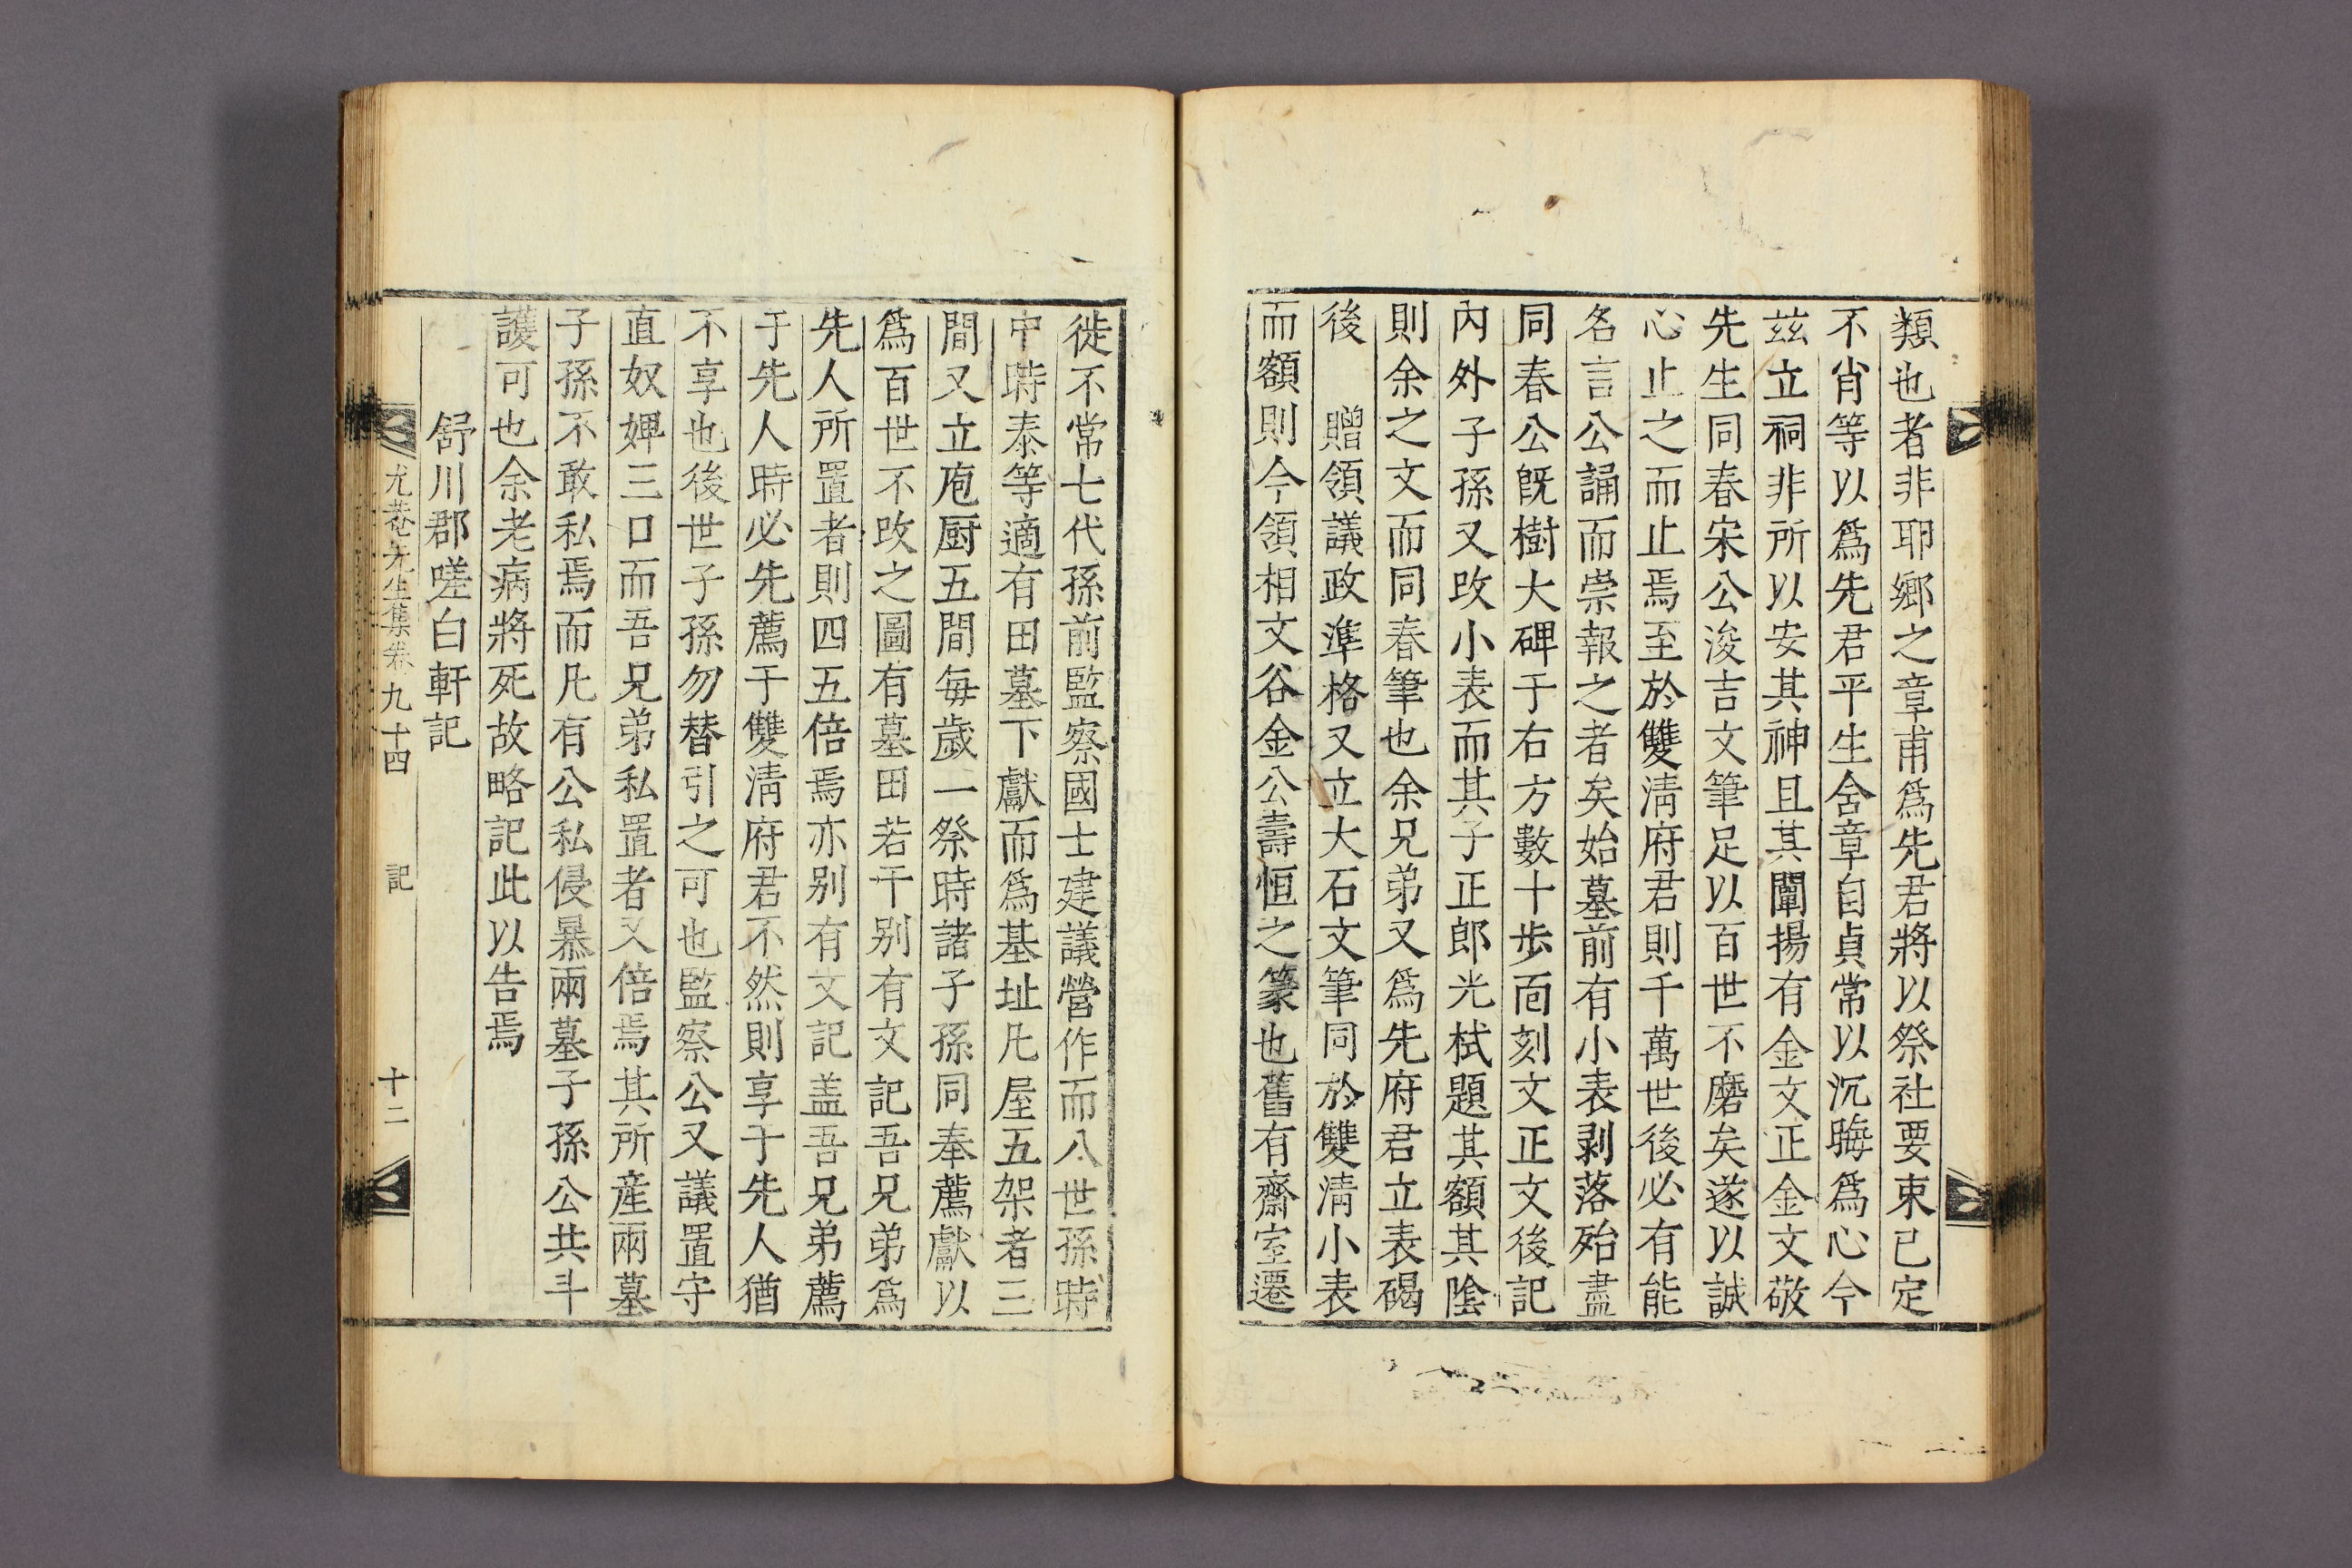 類也者非耶鄉之章甫爲先君將以祭社要束已定
不肖等以爲先君平生含章自貞常以沉晦爲心今
茲立祠非所以安其神且其闡揚有金文正金文敬
先生同春宋公浚吉文筆足以百世不磨矣遂以誠
心止之而止焉至於雙淸府君則千萬世後必有能
名言公誦而崇報之者矣始墓前有小表剥落殆盡
同春公旣樹大碑于右方數十步而刻文正文後記
內外子孫又改小表而其子正郎光栻題其額其陰
則余之文而同春筆也余兄弟又爲先府君立表碣
後　贈領議政準格又立大石文筆同於雙淸小表
而額則今領相文谷金公壽恒之篆也舊有齋室遷
徙不常七代孫前監察國士建議營作而八世孫時
中時泰等適有田墓下獻而爲基址凡屋五架者三
間又立庖厨五間每歲一祭時諸子孫同奉薦獻以
爲百世不改之圖有墓田若干别有文記吾兄弟爲
先人所置者則四五倍焉亦别有文記盖吾兄弟薦
于先人時必先薦于雙淸府君不然則享于先人猶
不享也後世子孫勿替引之可也監察公又議置守
直奴婢三口而吾兄弟私置者又倍焉其所産兩墓
子孫不敢私焉而凡有公私侵暴兩墓子孫公共斗
護可也余老病將死故略記此以告焉
舒川郡嗟白軒記
尤菴先生集卷九十四　記　十二